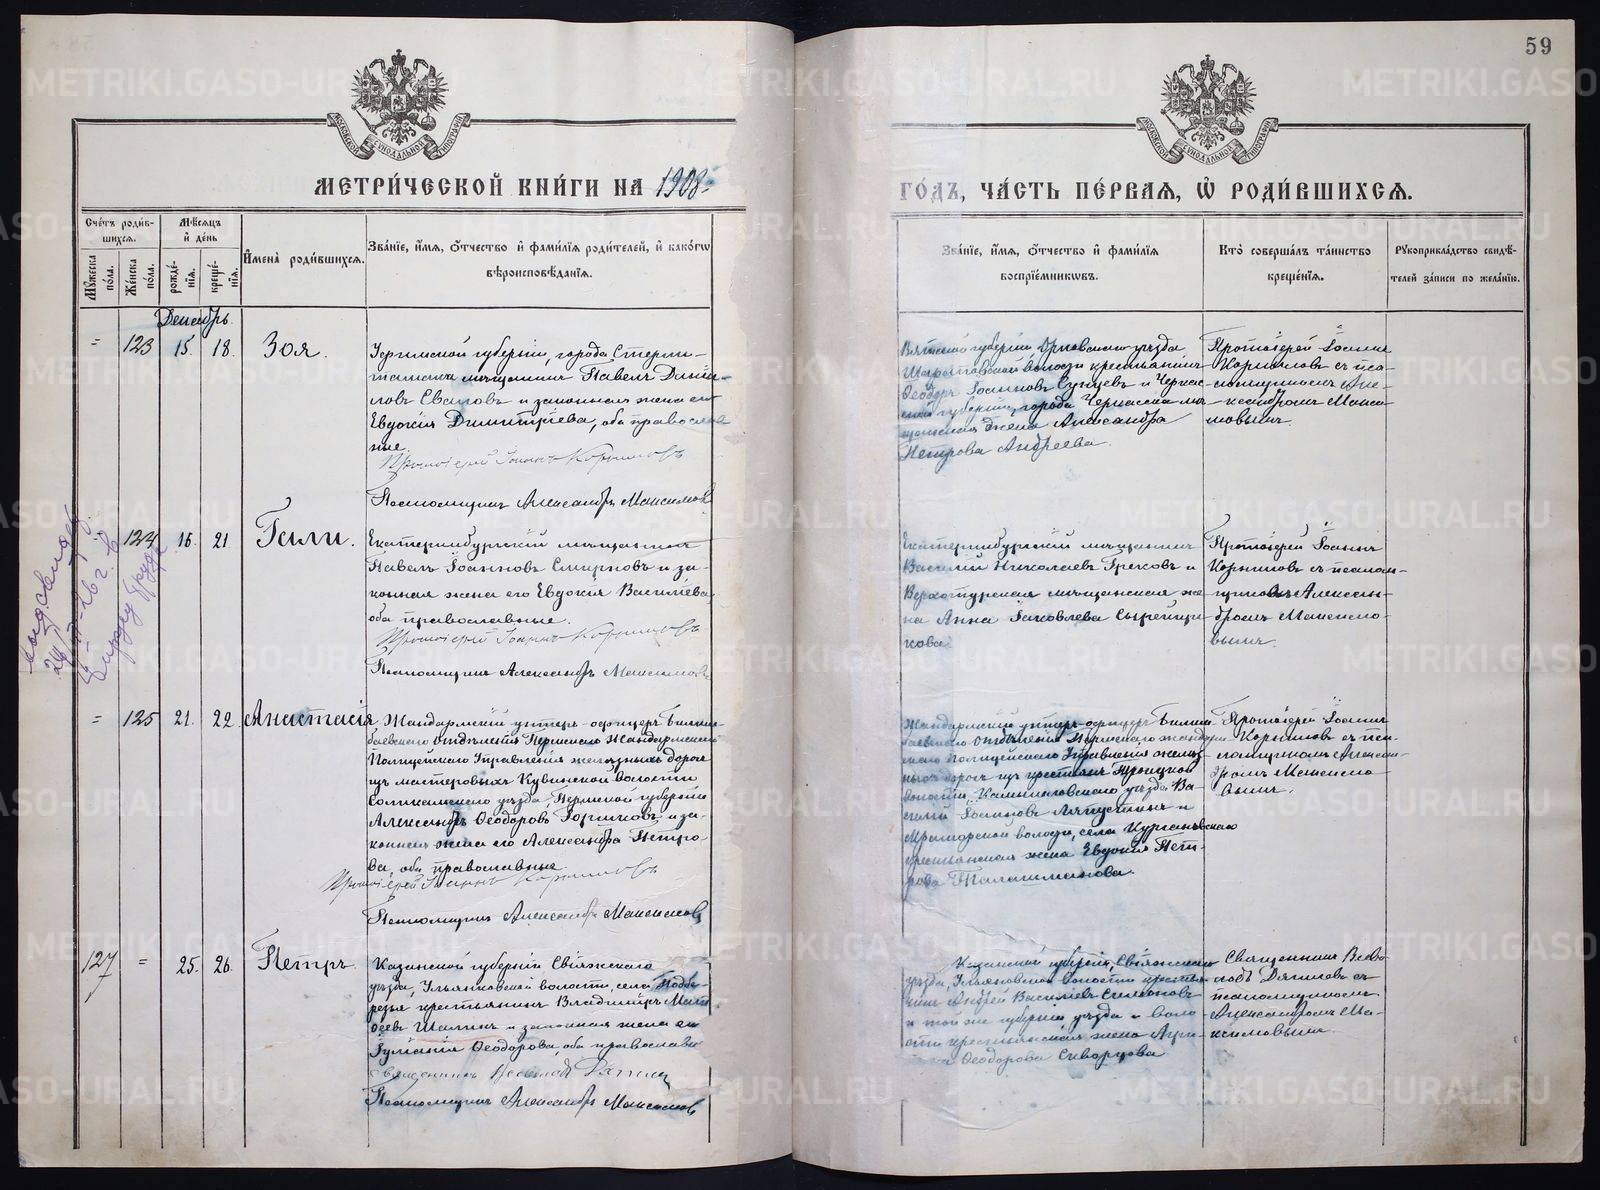 59
МЕТРИ́ЧЕСКОЙ КНИ́ГИ НА 1908
ГО́ДЪ, ЧА́СТЬ ПЕ́РВАЯ, Ѡ҆ РОДИ́ВШИХСЯ.
Сче́тъ роди́в-
шихся.
Мѣ́сяцъ
и҆ де́нь
Му́жеска
по́ла.
Же́нска
по́ла.
рожде́-
нїя.
креще́-
нїя.
И҆мена̀ роди́вшихся.
Зва́нїе, и҆́мя, ѻ҆́тчество и҆ фами́лїя роди́телей, и҆ како́гѡ
вѣроисповѣ́данїя.
Зва́нїе, и҆́мя, ѻ҆́тчество и҆ фами́лїя
воспрїе́мникѡвъ.
Кто̀ соверша́лъ та́инство
креще́нїя.
Рꙋкоприкла́дство свидѣ́-
телей за́писи по жела́нїю.
Декабрь
" 123 15. 18. Зоя.
Уфимской губерніи, города Стерли-
тамака мѣщанинъ Павелъ
и законная жена его
Евдокія Димитріева, оба православ-
ные.
Протоіерей Іоаннъ Корниловъ
Псаломщикъ Александръ Максимовъ
Вятской губерніи Орловскаго уѣзда
волости крестьянинъ
Ѳеодоръ Іоанновъ Сунцевъ и Черкас-
ской губерніи, города Черкасска мѣ-
щанская жена Александра
Петрова Андреева.
Протоіерей Іоаннъ
Корниловъ съ пса-
ломщикомъ Але-
ксандромъ Макси-
мовымъ.
124 16. 21.
Екатеринбургскій мѣщанинъ
Павелъ Іоанновъ Смирновъ и за-
конная жена его Евдокія Василіева
оба православные.
Протоіерей Іоаннъ Корниловъ
Псаломщикъ Александръ Максимовъ
Екатеринбургскій мѣщанинъ
Василій Николаевъ Грековъ и
Верхотурская мѣщанская же-
на Анна Іаковлева Сырейщи-
кова
Протоіерей Іоаннъ
Корниловъ съ псалом-
щикомъ Алексан-
дромъ Максимо-
вымъ.
" 125 21. 22. Анастасія
Жандармскій унтеръ-офицеръ Билим-
баевскаго отдѣленія Пермскаго Жандармскаго
Полицейскаго Управленія желѣзныхъ дорогъ
изъ мастеровыхъ Кувинской волости
Соликамскаго уѣзда, Пермской губерніи
Александръ Ѳеодоровъ и за-
конная жена его Александра Петро-
ва, оба православные.
Протоіерей Іоаннъ Корниловъ
Псаломщикъ Александръ Максимовъ
Жандармскій унтеръ-офицеръ Билим-
баевскаго отдѣленія Пермскаго жандарм-
скаго полицейскаго Управленія желѣз-
ныхъ дорогъ изъ крестьянъ Троицкой
волости, Камышловскаго уѣзда Ва-
силій Іоанновъ и
Мраморской волости, села Кургановскаго
крестьянская жена Евдокія Пет-
рова Талашманова.
Протоіерей Іоаннъ
Корниловъ съ пса-
ломщикомъ Алексан-
дромъ Максимо-
вымъ.
127 " 25. 26. Петръ.
Казанской губерніи Свіяжскаго
уѣзда, Ульянковской волости, села Подбе-
резья крестьянинъ Владиміръ Мат-
ѳеевъ Шалинъ и законная жена его
Іуліанія Ѳеодорова, оба православн.
Священникъ Всеволодъ
Псаломщикъ Александръ Максимовъ
Казанской губерніи, Свіяжскаго
уѣзда, Ульянковской волости крестья-
нинъ Андрей Василіевъ Симоновъ
и той же губерніи уѣзда и воло-
сти крестьянская жена
Ѳеодорова Скворцова
Священникъ Всево-
лодъ съ
псаломщикомъ
Александромъ Ма-
ксимовымъ.